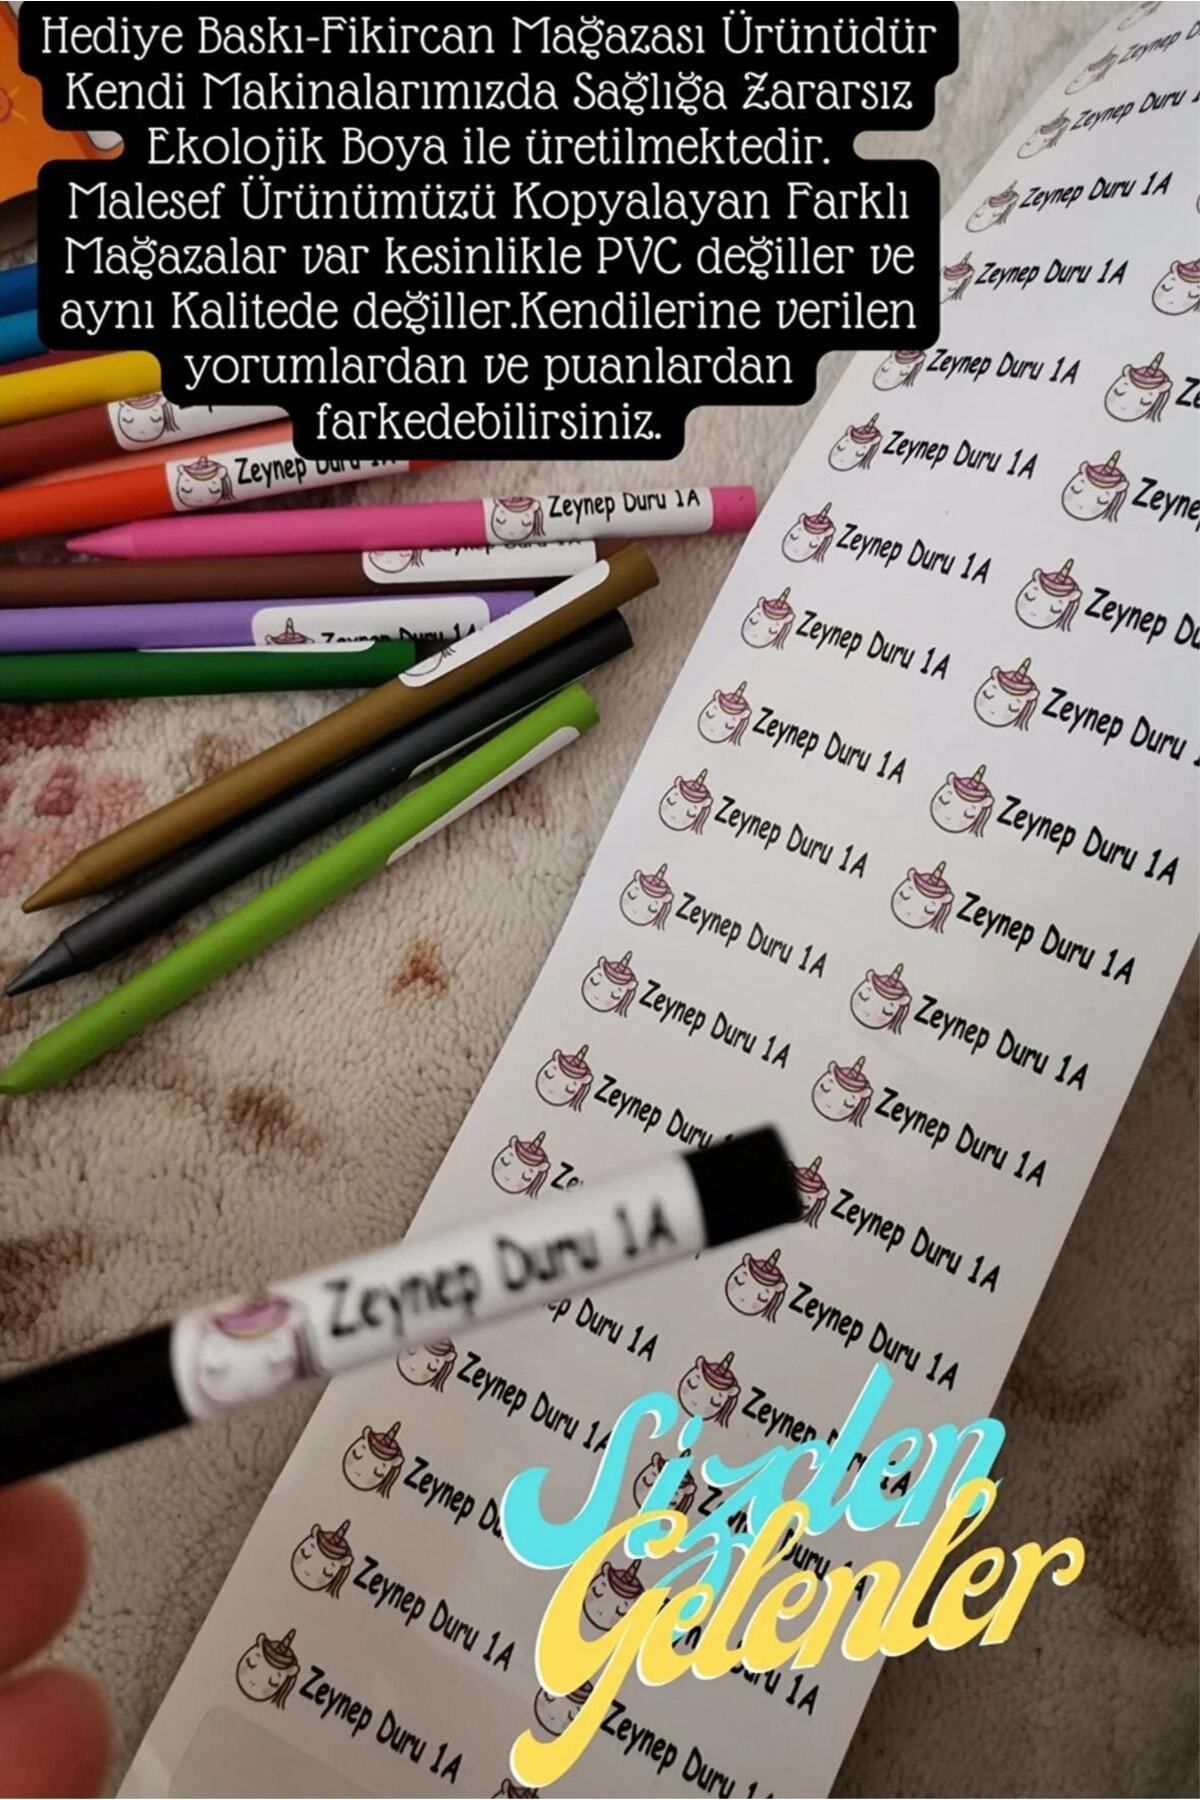 Hediye Baskı-Fikircan Mağazası Ürünüdür
Kendi Makinalarımızda Sağlığa Zararsız
Ekolojik Boya ile üretilmektedir.
Malesef Ürünümüzü Kopyalayan Farklı
Mağazalar var kesinlikle PVC değiller ve
aynı Kalitede değiller.Kendilerine verilen
yorumlardan ve puanlardan
farkedebilirsiniz.
Zeynep Duru 1A
Zeynep Duru 1A
Zeynep Duru 1A
Zeynep Duru 1A
Zeynep Duru 1A
Zeynep Duru 1A
Zeynep Duru 1A
Zeynep Duru 1A
Zeynep Duru 1A
Zeynep Duru 1A
Zeynep Duru 1A
Zeynep Duru 1A
Zeynep Duru
Zeynep Duru 1A
Zeynep Duru 1A
Zeynep Duru 1A
Zeynep Duru 1A
Zeynep Duru 1A
Zeynep Duru
Zeynep Duru 1A
Zeynep Duru 1A
Zeynep Duru 1A
Duru 1A
Zeynep Duru 1A
Zeynep Duru 1A
Sizden
Gelenler
Zeynep Duru 1A
Zeynep Duru 1A
Zeynep Duru